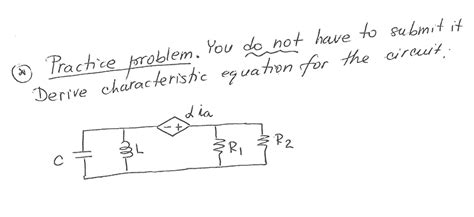 (*) Practice problem. You do not have to submit it
Derive characteristic equation for the circuit:
αia
- +
C
L
R1
R2